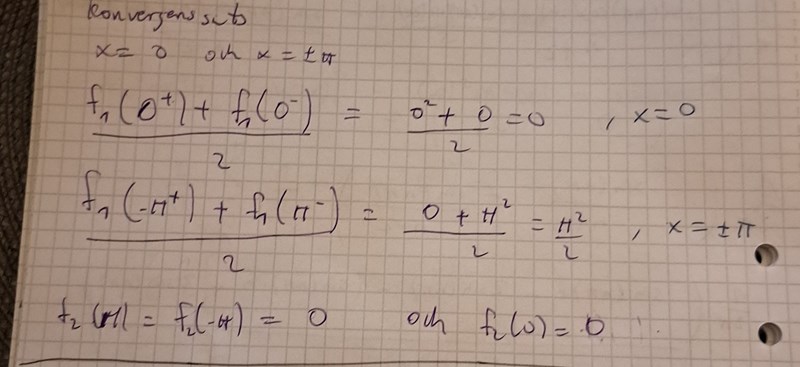 Konvergenssats
x = 0 och x = ±π
f₁(0⁺) + f₁(0⁻) / 2 = 0² + 0 / 2 = 0 , x = 0
f₁(-π⁺) + f₁(π⁻) / 2 = 0 + π² / 2 = π² / 2 , x = ±π
f₂(π) = f₂(-π) = 0 och f₂(0) = 0